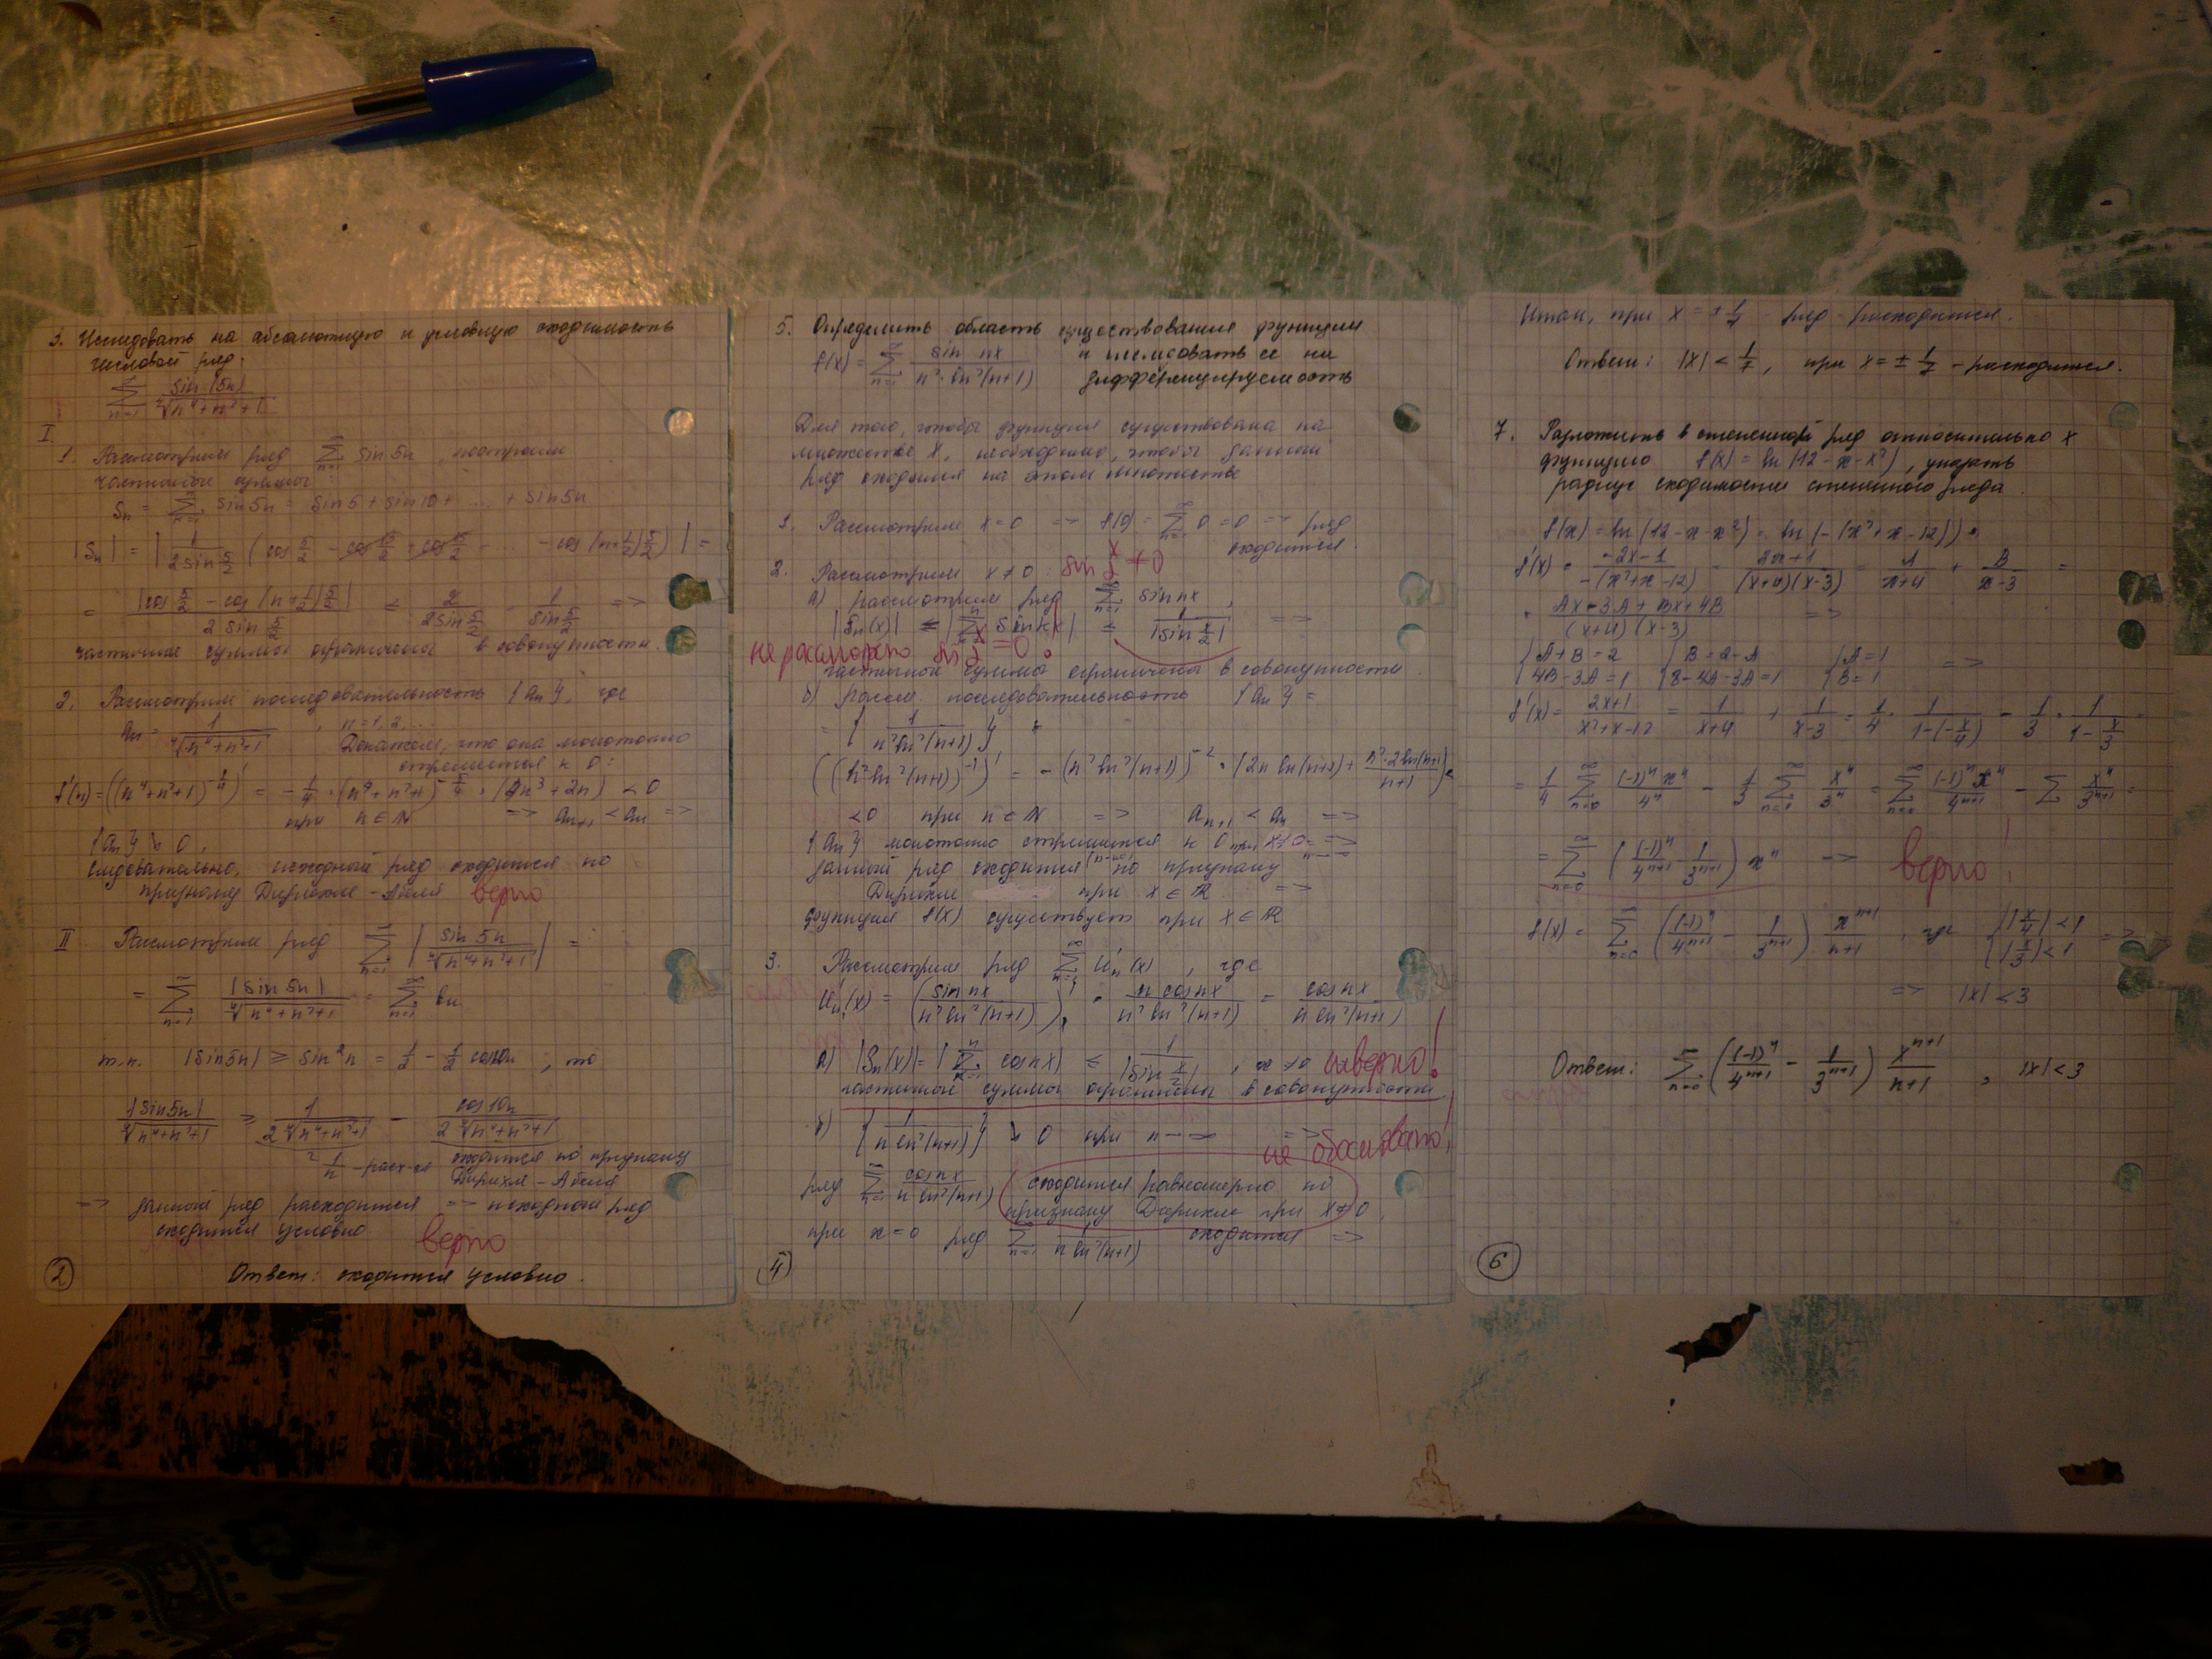 3. Исследовать на абсолютную и условную сходимость
числовой ряд:
∑_{n=1}^{∞} sin(5n) / ⁴√(n⁴+n²+1)
I
1. Рассмотрим ряд ∑_{n=1}^{∞} sin 5n, построим
частичные суммы:
Sₙ = ∑ sin 5n = sin 5 + sin 10 + ... + sin 5n
|Sₙ| = | 1/(2 sin 5/2) (cos 5/2 - cos 15/2 + cos 15/2 - ... - cos (n+1/2) 5/2) | =
= |cos 5/2 - cos (n+1/2) 5/2| / (2 sin 5/2) ≤ 2/(2 sin 5/2) = 1/(sin 5/2) =>
частичные суммы ограничены в совокупности.
2. Рассмотрим последовательность {aₙ}, где
aₙ = 1/⁴√(n⁴+n²+1), n = 1, 2, ...
Докажем, что она монотонно
стремится к 0:
f'(n) = ((n⁴+n²+1)^{-1/4})' = -1/4 · (n⁴+n²+1)^{-5/4} · (4n³+2n) < 0
при n ∈ N => aₙ₊₁ < aₙ =>
{aₙ} ↘ 0,
следовательно, исходный ряд сходится по
признаку Дирихле - Абеля верно
II Рассмотрим ряд ∑_{n=1}^{∞} | sin 5n / ⁴√(n⁴+n²+1) | =
= ∑_{n=1}^{∞} |sin 5n| / ⁴√(n⁴+n²+1) = ∑_{n=1}^{∞} bₙ
т.к. |sin 5n| ≥ sin² n = 1/2 - 1/2 cos 10n, то
|sin 5n| / ⁴√(n⁴+n²+1) ≥ 1/(2 ⁴√(n⁴+n²+1)) - cos 10n / (2 ⁴√(n⁴+n²+1))
~ 1/n - расх-ся сходится по признаку
Дирихле - Абеля
=> данный ряд расходится => исходный ряд
сходится условно верно
Ответ: сходится условно.
2
5. Определить область существования функции
f(x) = ∑_{n=1}^{∞} sin nx / (n² · ln²(n+1)) и исследовать ее на
дифференцируемость
Для того, чтобы функция существовала на
множестве X, необходимо, чтобы данный
ряд сходился на этом множестве
1. Рассмотрим x = 0 => f(0) = ∑_{n=1}^{∞} 0 = 0 => ряд
сходится.
2. Рассмотрим x ≠ 0: sin x/2 ≠ 0
а) рассмотрим ряд ∑_{n=1}^{∞} sin nx,
|Sₙ(x)| ≤ |∑ sin kx| ≤ 1/|sin x/2| =>
не рассмотрено sin x/2 = 0!
частичные суммы ограничены в совокупности.
б) рассм. последовательность {aₙ} =
= { 1/(n² ln²(n+1)) }
((n² ln²(n+1))^{-1})' = -(n² ln²(n+1))^{-2} · (2n ln(n+1) + n² · 2 ln(n+1)/(n+1)) <
< 0 при n ∈ N => aₙ₊₁ < aₙ =>
{aₙ} монотонно стремится к 0 при x ≠ 0 =>
данный ряд сходится по признаку
Дирихле при x ∈ R =>
функция f(x) существует при x ∈ R
3. Рассмотрим ряд ∑_{n=1}^{∞} u'ₙ(x), где
u'ₙ(x) = (sin nx / (n² ln²(n+1)))' = n cos nx / (n² ln²(n+1)) = cos nx / (n ln²(n+1))
а) |Sₙ(x)| = |∑ cos nx| ≤ 1/|sin x/2|, x ≠ 0 неверно!
частичные суммы ограничены в совокупности
б) { 1/(n ln²(n+1)) } ↘ 0 при n → ∞ =>
не обосновано!
ряд ∑_{n=1}^{∞} cos nx / (n ln²(n+1)) сходится равномерно по
признаку Дирихле при x ≠ 0,
при x = 0 ряд ∑_{n=1}^{∞} 1/(n ln²(n+1)) сходится =>
4
Итак, при x = ± 1/7 ряд расходится.
Ответ: |x| < 1/7, при x = ± 1/7 - расходится.
7. Разложить в степенной ряд относительно x
функцию f(x) = ln(12 - x - x²), указать
радиус сходимости степенного ряда.
f(x) = ln(12 - x - x²) = ln(-(x² + x - 12)) =
f'(x) = (-2x-1)/(-(x²+x-12)) = (2x+1)/((x+4)(x-3)) = A/(x+4) + B/(x-3) =
= (Ax - 3A + Bx + 4B)/((x+4)(x-3)) =>
{A+B = 2 {B = 2-A {A = 1 =>
{4B-3A = 1 {8-4A-3A = 1 {B = 1
f'(x) = (2x+1)/(x²+x-12) = 1/(x+4) + 1/(x-3) = 1/4 · 1/(1-(-x/4)) - 1/3 · 1/(1-x/3) =
= 1/4 ∑_{n=0}^{∞} (-1)ⁿxⁿ/4ⁿ - 1/3 ∑_{n=0}^{∞} xⁿ/3ⁿ = ∑_{n=0}^{∞} (-1)ⁿxⁿ/4ⁿ⁺¹ - ∑ xⁿ/3ⁿ⁺¹ =
= ∑_{n=0}^{∞} ((-1)ⁿ/4ⁿ⁺¹ - 1/3ⁿ⁺¹) xⁿ => верно!
f(x) = ∑_{n=0}^{∞} ((-1)ⁿ/4ⁿ⁺¹ - 1/3ⁿ⁺¹) xⁿ⁺¹/(n+1), где {|x/4| < 1 {|x/3| < 1 =>
=> |x| < 3
Ответ: ∑_{n=0}^{∞} ((-1)ⁿ/4ⁿ⁺¹ - 1/3ⁿ⁺¹) xⁿ⁺¹/(n+1), |x| < 3
6